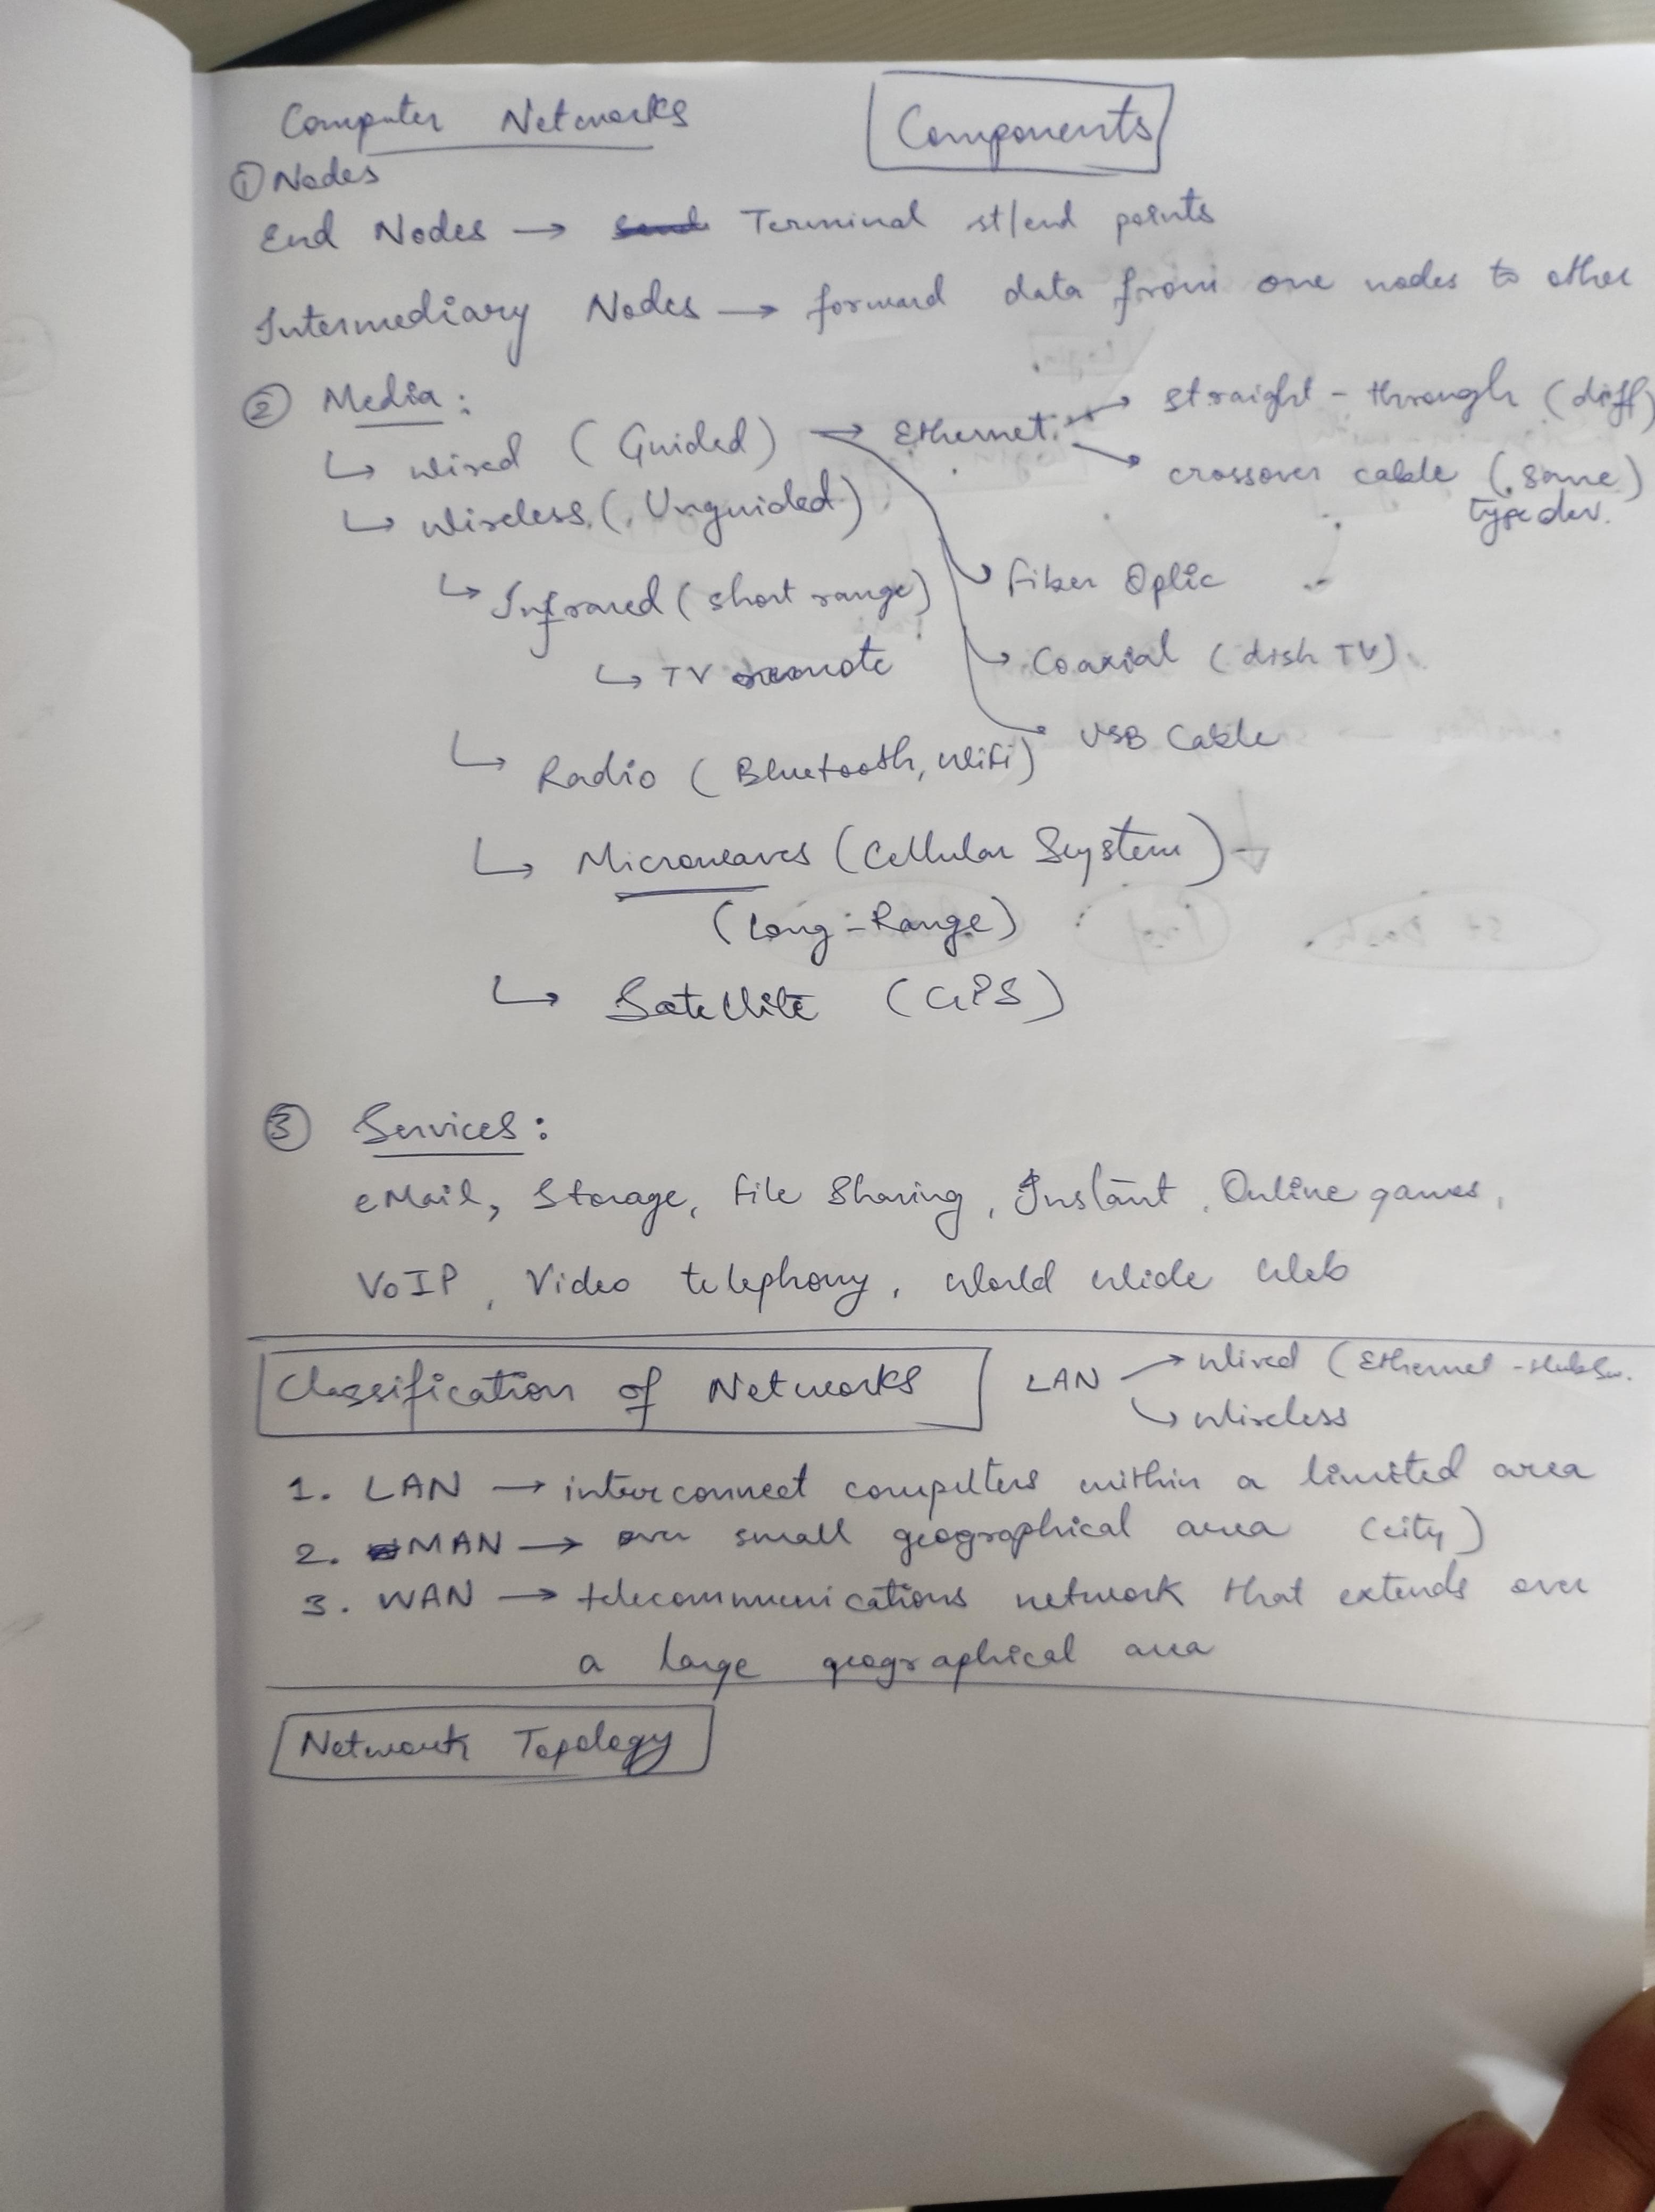 Computer Networks
Components
① Nodes
End Nodes → Terminal st/end points
Intermediary Nodes → forward data from one nodes to other
② Media:
↳ wired (Guided) → Ethernet → straight-through (diff)
→ crossover cable (same) type dev.
↳ Wireless (Unguided)
→ Fiber Optic
↳ Infrared (short range)
→ Coaxial (dish TV)
↳ TV remote
USB Cable
↳ Radio (Bluetooth, WiFi)
↳ Microwaves (Cellular System)
(Long-Range)
↳ Satellite (GPS)
③ Services:
eMail, Storage, File Sharing, Instant, Online games,
VoIP, Video telephony, World Wide Web
Classification of Networks
LAN → Wired (Ethernet -
↳ Wireless
1. LAN → interconnect computers within a limited area
2. MAN → over small geographical area (city)
3. WAN → telecommunications network that extends over
a large geographical area
Network Topology